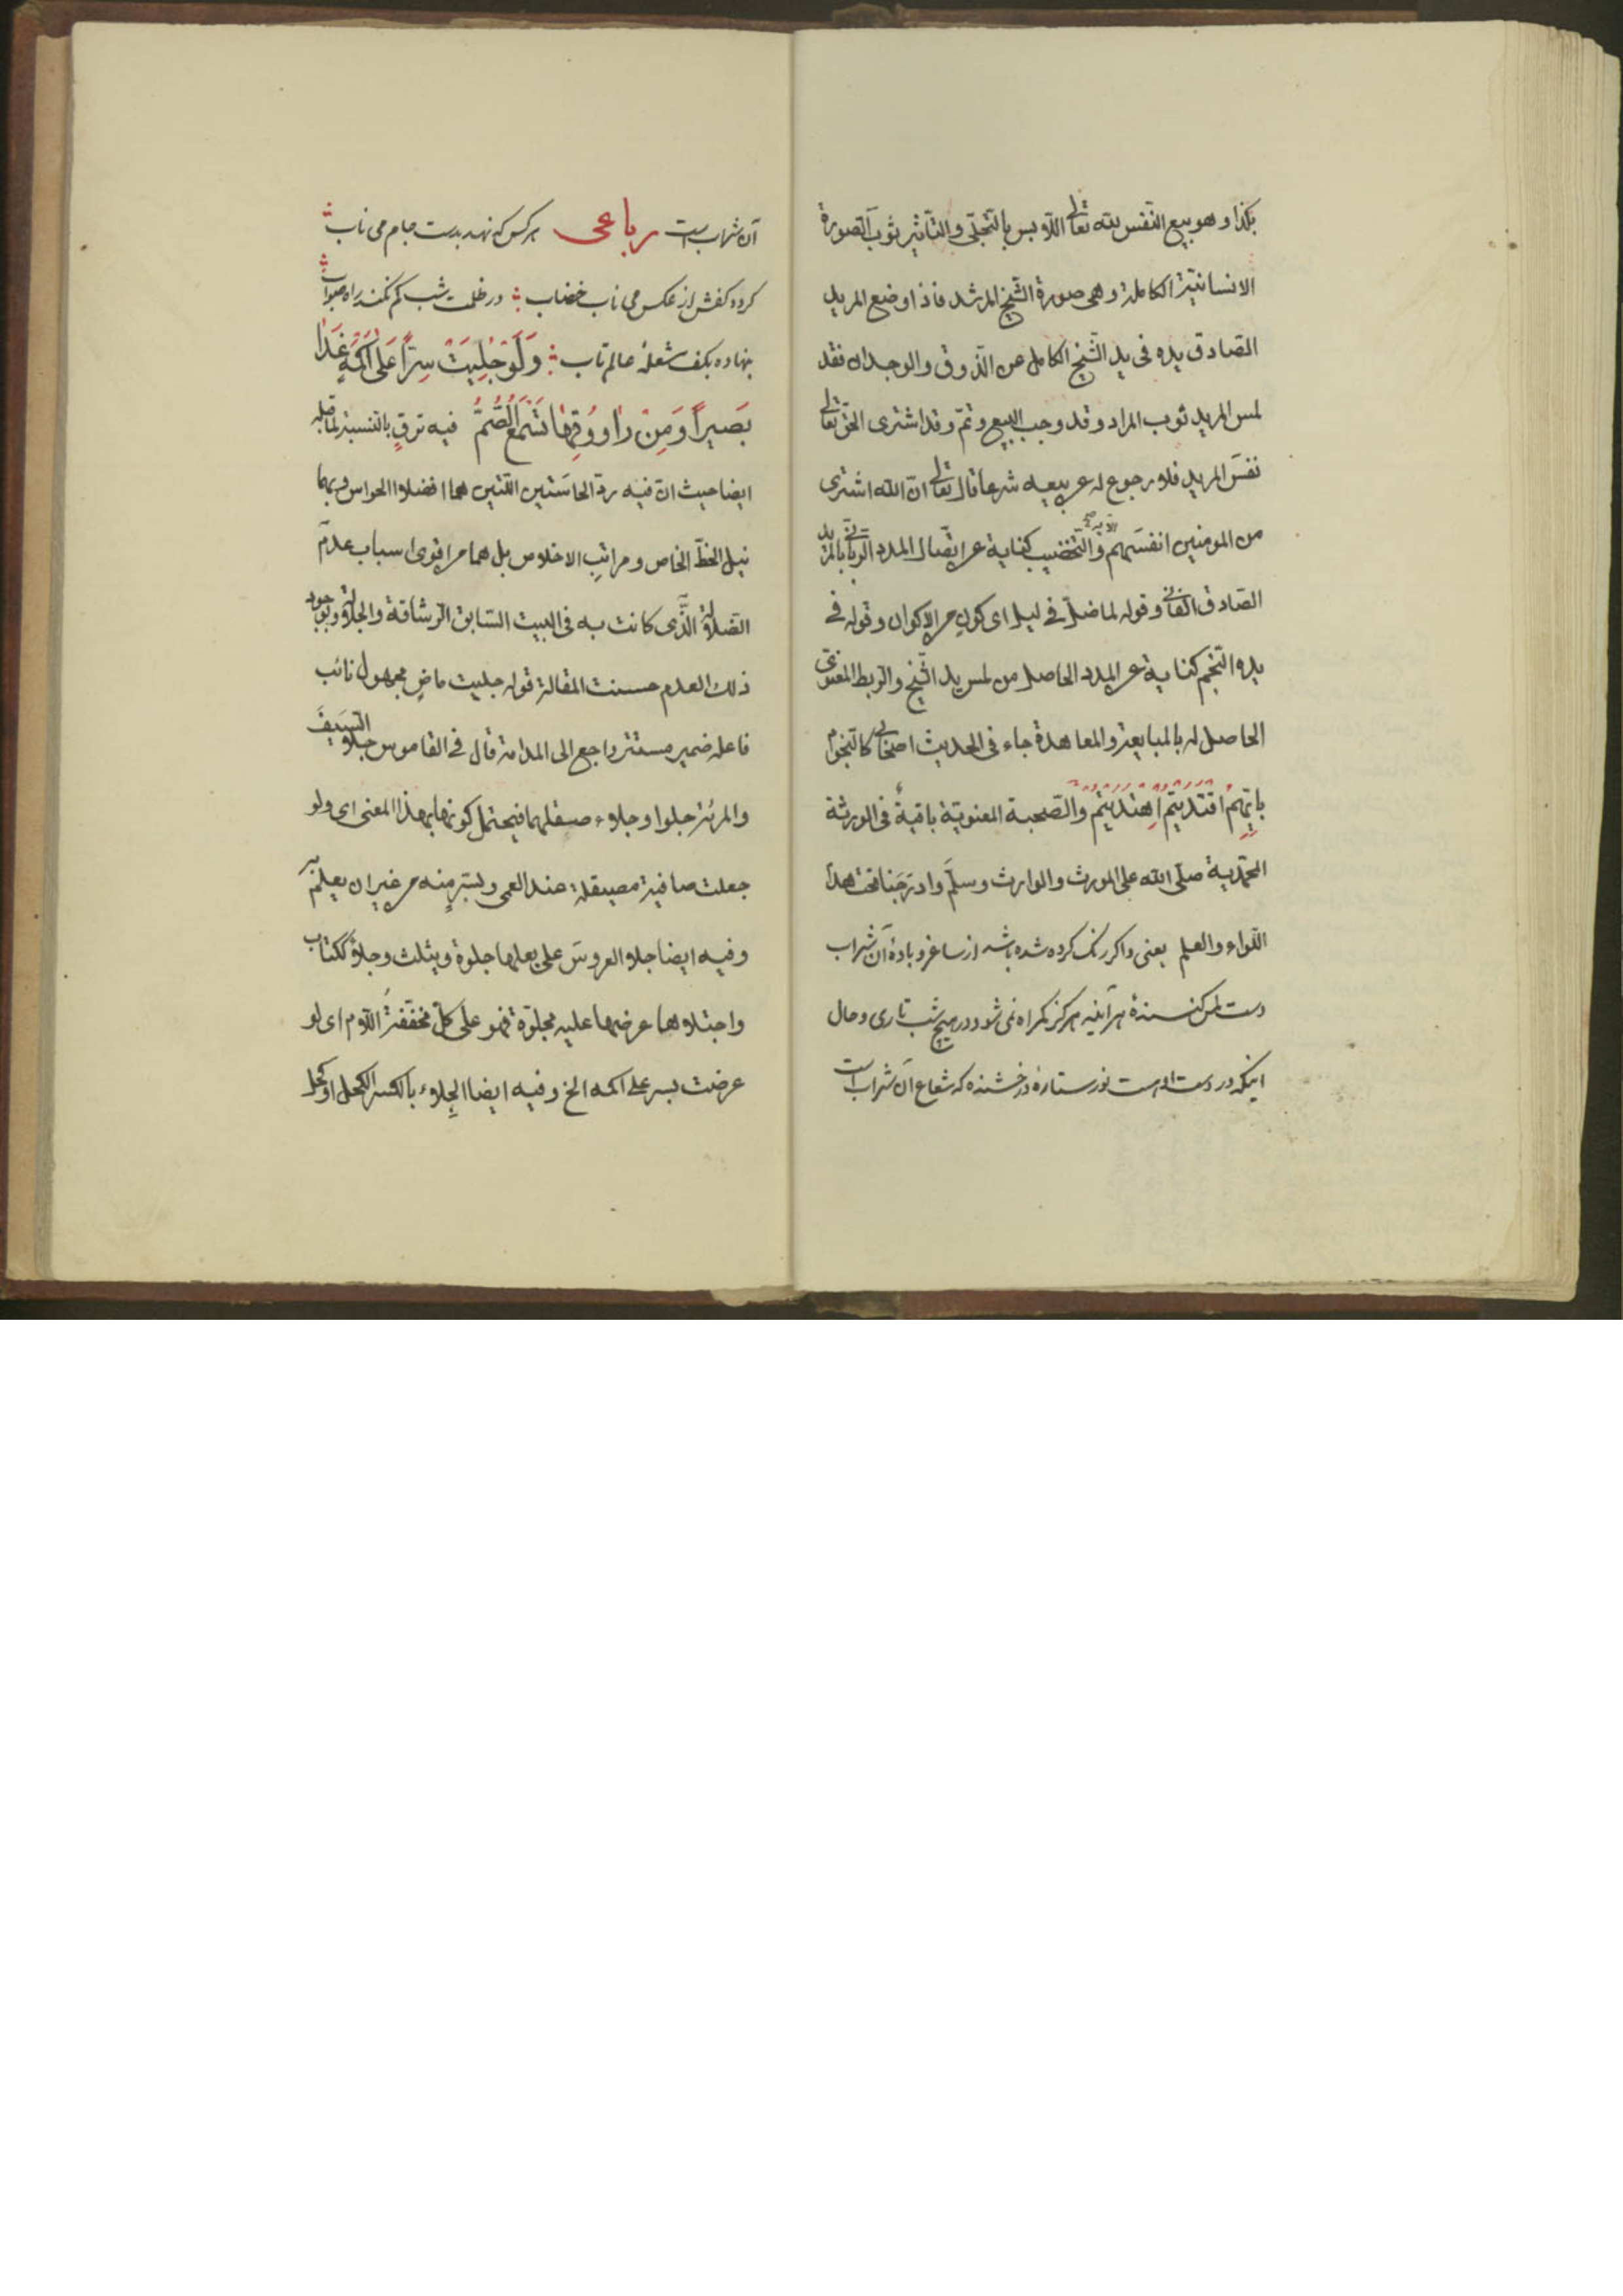 بكذا وهو بيع النفس لله تعالى اللابس بالتجلّي والتأثير ثوب الصورة
الانسانية الكاملة وهى صورة الشيخ المرشد فاذا وضع المريد
الصادق يده فى يد الشيخ الكامل عن الذوق والوجدان فقد
لمس المريد ثوب المراد وقد وجب البيع وتمّ وقد اشترى الحق تعالى
نفسَ المريد فلا رجوع له عن بيعه شرعا قال تعالى انّ الله اشترى
من المومنين انفسَهم الاية والتخضيب كناية عن اتصال المدد الربانى بالمريد
الصادق الفانى وقوله لما ضلّ فى ليل اى كونٍ من الاكوان وقوله فى
يده النجم كناية عن المدد الحاصل من لمس يد الشيخ والربط المعنوى
الحاصل له بالمبايعة والمعاهدة جاء فى الحديث اصحابى كالنجوم
بايّهم اقتديتم اهتديتم والصحبة المعنوية باقيةٌ فى الورثة
المحمّدية صلّى الله على المورث والوارث وسلّم وادرَجَنا تحت هذا
اللواء والعلم يعنى واكر رنك كرده شده باشد از ساغر وبادهٔ آن شراب
دست لمس كنندهٔ هر آينه هركز كمراه نمى شود در هيچ شب تارى وحال
اينكه در دست اوست نور ستارهٔ درخشنده كه شعاع آن شراب است
آن شراب است رباعى هر كس كه نهد بدست جام مى ناب
كردد كفش از عكس مى ناب خضاب در ظلمت شب كم نكند راه صواب
بنهاده بكف شعلهٔ عالم تاب وَلَوْ جُلِيَتْ سِرّاً عَلى اَكْمَهٍ غَدَا
بَصيراً وَمِنْ راووُقِها تَسْمَعُ الصُّمُّ فيه ترقٍ بالنسبة لما قبله
ايضا حيث انّ فيه ردّ الحاسّتين اللتين هما افضل الحواس وبهما
نيل الحظّ الخاص ومراتبِ الاخلاص بل هما من اقوى اسباب عدم
الضلالة الّذى كانت به فى البيت السابق الرشاقة والجلالة وبوجود
ذلك العدم حسنت المقالة قوله جليت ماضٍ مجهول نائب
فاعله ضمير مستتر راجع الى المدامة قال فى القاموس جلا السيفَ
والمرئة جلوا وجلاء صقلهما فيحتمل كونها بهذا المعنى اى ولو
جعلت صافية مصيقلة عند العمى وبسترٍ منه من غير ان يعلم
وفيه ايضا جلا العروسَ على بعلها جلوة ويثلث وجلاءً ككتاب
واجتلاها عرضها عليه مجلوّة فهو على كلّ مخفّفةُ اللام اى لو
عرضت بسر على اكمه الخ وفيه ايضا الجِلاء بالكسر الكحل او كحل